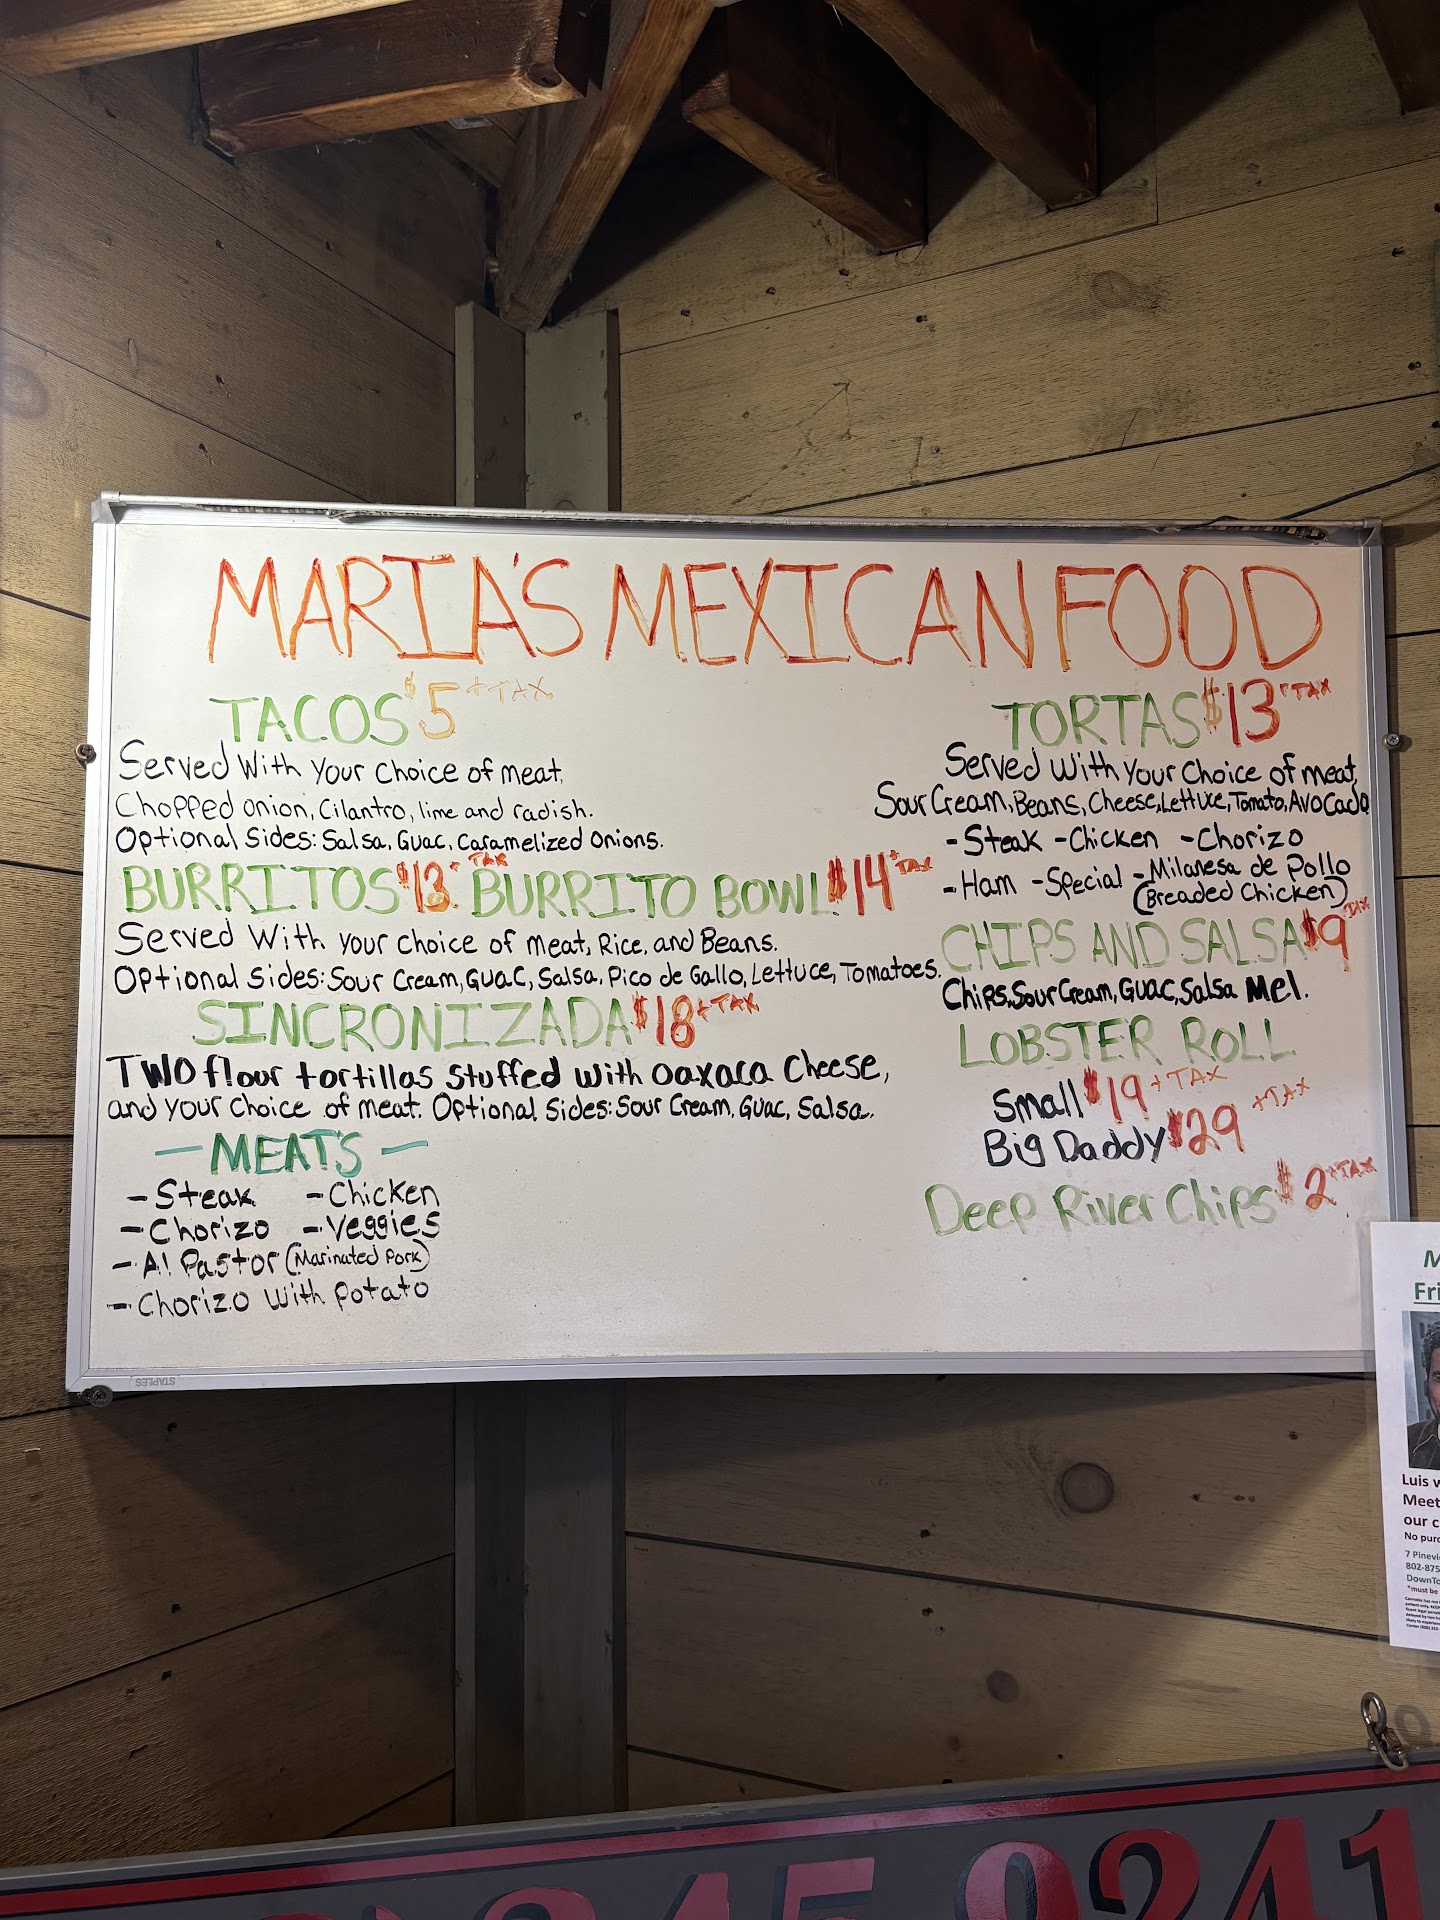 MARIA'S MEXICAN FOOD
TACOS $5 + TAX
Served With Your Choice of meat,
Chopped onion, Cilantro, lime and radish.
Optional Sides: Salsa, Guac, Caramelized Onions.
BURRITOS $13 + TAX BURRITO BOWL $14 + TAX
Served With your choice of meat, Rice, and Beans.
Optional Sides: Sour Cream, Guac, Salsa, Pico de Gallo, Lettuce, Tomatoes.
SINCRONIZADA $18 + TAX
TWO flour tortillas stuffed with Oaxaca Cheese,
and your choice of meat. Optional Sides: Sour Cream, Guac, Salsa.
- MEATS -
- Steak - Chicken
- Chorizo - Veggies
- Al Pastor (Marinated Pork)
- Chorizo with potato
TORTAS $13 + TAX
Served with your choice of meat,
Sour Cream, Beans, Cheese, Lettuce, Tomato, Avocado
- Steak - Chicken - Chorizo
- Ham - Special - Milanesa de Pollo
(Breaded Chicken)
CHIPS AND SALSA $9 + TAX
Chips, Sour Cream, Guac, Salsa Mel.
LOBSTER ROLL
Small $19 + TAX
Big Daddy $29 + TAX
Deep River Chips $2 + TAX
STAPLES
M
Fri
Luis w
Meet
our c
No purc
7 Pinevi
802-875
DownTo
*must be
845-9241